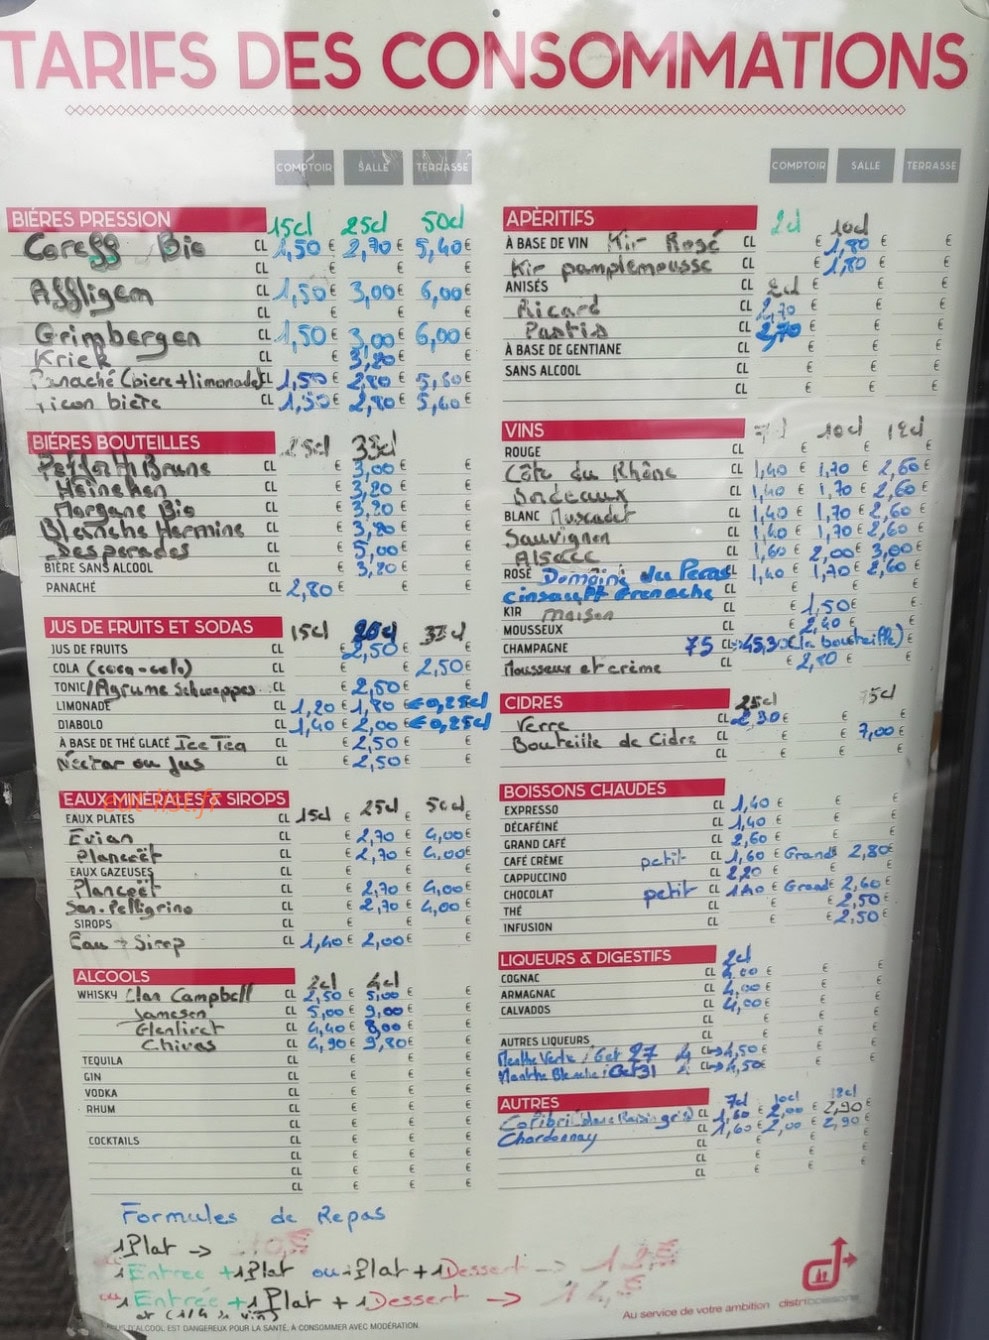 TARIFS DES CONSOMMATIONS
COMPTOIR SALLE TERRASSE
BIÈRES PRESSION 15cl 25cl 50cl
Coreff Bio CL 1,50 € 2,70 € 5,40 €
CL € € €
Affligem CL 1,50 € 3,00 € 6,00 €
CL € € €
Grimbergen CL 1,50 € 3,00 € 6,00 €
Kriek CL € 3,20 € €
Panaché (bière + limonade) CL 1,50 € 2,80 € 5,60 €
bière CL 1,50 € 2,80 € 5,60 €
BIÈRES BOUTEILLES 25cl 33cl
Brune CL € 3,00 € €
Heineken CL € 3,20 € €
Morgane Bio CL € 3,20 € €
Blanche Hermine CL € 3,20 € €
Desperados CL € 5,00 € €
BIÈRE SANS ALCOOL CL € 3,20 € €
PANACHÉ CL 2,80 € € €
JUS DE FRUITS ET SODAS 15cl 25cl 33cl
JUS DE FRUITS CL € 2,50 € €
COLA (coca-cola) CL € € 2,50 €
TONIC/Agrume Schweppes CL € 2,50 € €
LIMONADE CL 1,20 € 1,80 € 0,25cl
DIABOLO CL 1,40 € 2,00 € 0,25cl
À BASE DE THÉ GLACÉ Ice Tea CL € 2,50 € €
Nectar ou Jus CL € 2,50 € €
EAUX MINÉRALES & SIROPS
EAUX PLATES CL 15cl 25cl 50cl
Evian CL € 2,70 € 4,00 €
Plancoët CL € 2,70 € 4,00 €
EAUX GAZEUSES CL € € €
Plancoët CL € 2,70 € 4,00 €
San-Pelligrino CL € 2,70 € 4,00 €
SIROPS CL € € €
Eau + Sirop CL 1,40 € 2,00 € €
ALCOOLS 2cl 4cl
WHISKY Clan Campbell CL 2,50 € 5,00 €
Jameson CL 5,00 € 9,00 €
Glenlivet CL 4,40 € 8,00 €
Chivas CL 4,90 € 9,80 €
TEQUILA CL € € €
GIN CL € € €
VODKA CL € € €
RHUM CL € € €
CL € € €
COCKTAILS CL € € €
CL € € €
CL € € €
CL € € €
COMPTOIR SALLE TERRASSE
APÉRITIFS 2cl 10cl
À BASE DE VIN Kir Rosé CL € 1,80 € €
Kir pamplemousse CL € 1,80 € €
ANISÉS CL 2cl € € €
Ricard CL 2,70 € €
Pastis CL 2,70 € €
À BASE DE GENTIANE CL € € €
SANS ALCOOL CL € € €
CL € € €
VINS 7cl 10cl 12cl
ROUGE CL
Côte du Rhône CL 1,40 € 1,70 € 2,60 €
Bordeaux CL 1,40 € 1,70 € 2,60 €
BLANC Muscadet CL 1,40 € 1,70 € 2,60 €
Sauvignon CL 1,40 € 1,70 € 2,60 €
Alsace CL 1,60 € 2,00 € 3,00 €
ROSÉ Domaine du CL 1,40 € 1,70 € 2,60 €
Cinsault Grenache CL € € €
KIR maison CL € 1,50 € €
MOUSSEUX CL € 2,40 € €
CHAMPAGNE 75 CL 45,30 (la bouteille) €
Mousseux et crème CL € 2,80 € €
CIDRES 25cl 75cl
Verre CL 2,30 € € €
Bouteille de Cidre CL € € 7,00 €
CL € € €
BOISSONS CHAUDES
EXPRESSO CL 1,40 € € €
DÉCAFÉINÉ CL 1,40 € € €
GRAND CAFÉ CL 2,60 € € €
CAFÉ CRÈME petit CL 1,60 € Grand € 2,80 €
CAPPUCCINO CL 2,20 € € €
CHOCOLAT petit CL 1,40 € Grand € 2,60 €
THÉ CL € € 2,50 €
INFUSION CL € € 2,50 €
LIQUEURS & DIGESTIFS 2cl
COGNAC CL 4,00 € € €
ARMAGNAC CL 4,00 € € €
CALVADOS CL 4,00 € € €
CL € € €
AUTRES LIQUEURS CL € € €
Menthe Verte / Get 27 4 CL 4,50 € € €
Menthe Blanche / Get 31 4 CL 4,50 € € €
AUTRES 7cl 10cl 12cl
Colibri CL 1,60 € 2,00 € 2,90 €
Chardonnay CL 1,60 € 2,00 € 2,90 €
CL € € €
CL € € €
CL € € €
Formules de Repas
1 Plat →
ou 1 Entrée + 1 Plat ou 1 Plat + 1 Dessert →
ou 1 Entrée + 1 Plat + 1 Dessert →
et (1/4 de vin)
L'ABUS D'ALCOOL EST DANGEREUX POUR LA SANTÉ, À CONSOMMER AVEC MODÉRATION.
Au service de votre ambition distriboissons